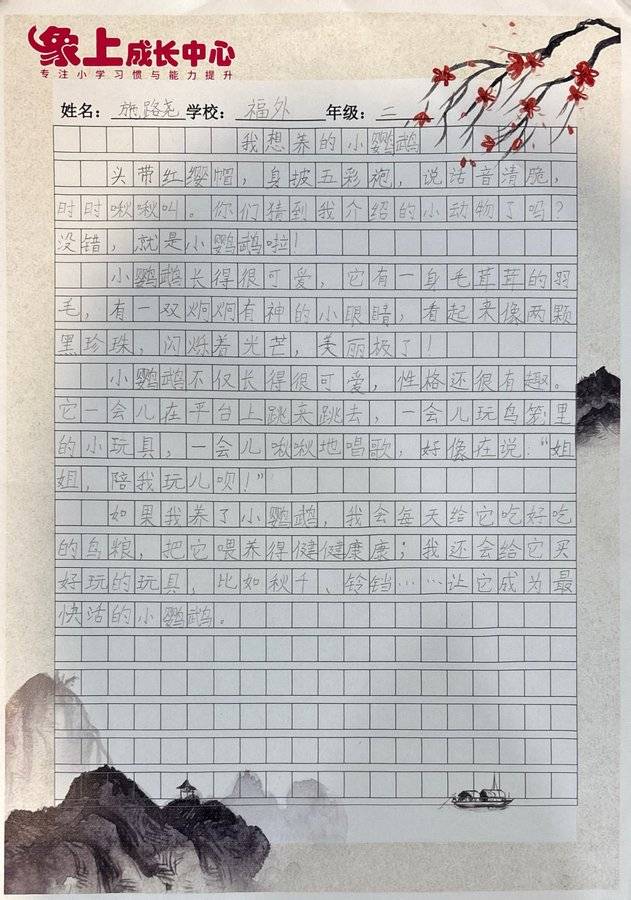 象上成长中心
专注小学习惯与能力提升
姓名：施路尧 学校：福外 年级：二
我想养的小鹦鹉
头带红缨帽，身披五彩袍，说话音清脆，
时时啾啾叫。你们猜到我介绍的小动物了吗？
没错，就是小鹦鹉啦！
小鹦鹉长得很可爱，它有一身毛茸茸的羽
毛，有一双炯炯有神的小眼睛，看起来像两颗
黑珍珠，闪烁着光芒，美丽极了！
小鹦鹉不仅长得很可爱，性格还很有趣。
它一会儿在平台上跳来跳去，一会儿玩鸟笼里
的小玩具，一会儿啾啾地唱歌，好像在说：“姐
姐，陪我玩儿呗！”
如果我养了小鹦鹉，我会每天给它吃好吃
的鸟粮，把它喂养得健健康康；我还会给它买
好玩的玩具，比如秋千、铃铛……让它成为最
快活的小鹦鹉。